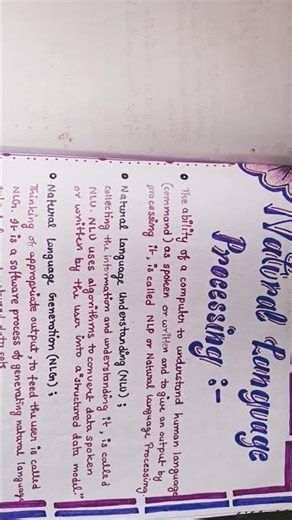 Natural Language
Processing :-
The ability of a computer to understand human language
(command) as spoken or written and to give an output by
processing it, is called NLP or Natural Language Processing.
Natural Language Understanding (NLU) ;
collecting the information and understanding it, is called
NLU. NLU uses algorithms to convert data spoken
or written by the user into a "structured data model."
Natural Language Generation (NLG) ;
Thinking of appropriate output, to feed the user is called
NLG. It is a software process of generating natural language